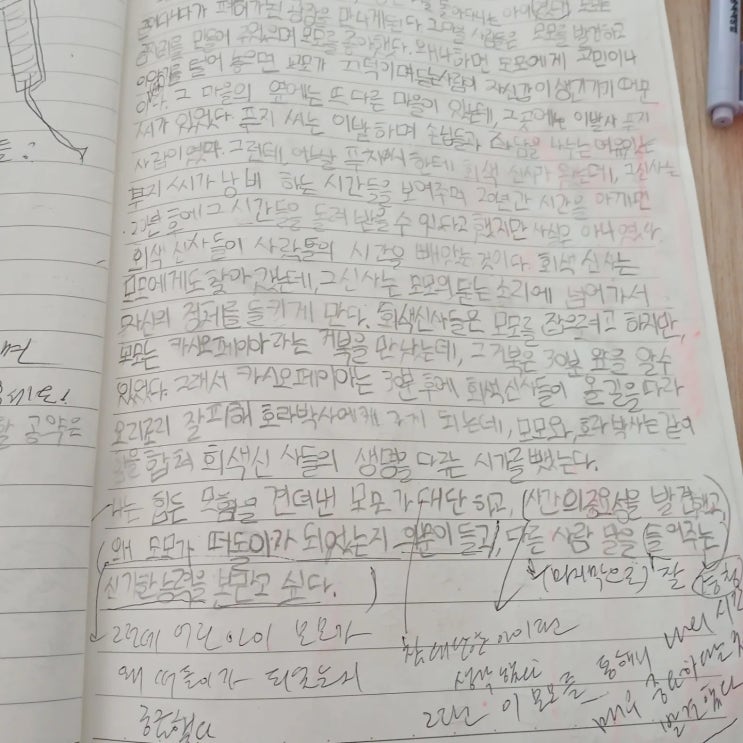 떠돌이다가 폐허가된 공장을 만나게된다. 그곳의 사람들은 모모를 발견하고
자리를 만들어 주었으며 모모를 좋아했다. 왜냐하면 모모에게 고민이나
이야기를 털어 놓으면 모모가 끄덕이며 듣는사람이 자신감이 생긴기기 때문
이다. 그 마을의 옆에는 또 다른 마을이 있는데, 그곳에는 이발사 푸지
씨가 있었다. 푸지 씨는 이발 하며 손님들과 수담을 나누는 여유있는
사람이 였다. 그런데, 어느날 푸지씨 한테 회색 신사가 왔는데, 그신사는
푸지 씨가 낭비 하는 시간들을 보여주며 20년간 시간을 아끼면
20년 후에 그 시간들을 돌려 받을 수 있다고 했지만 사실은 아니 였다.
회색 신사들이 사람들의 시간을 빼앗는 것이다. 회색 신사는
모모에게도 찾아 갔는데, 그신사는 모모의 듣는 소리에 넘어가서
자신의 정체를 들키게 만다. 회색신사들은 모모를 잡으려고 하지만,
모모는 카시오페이아 라는 거북을 만났는데, 그 거북은 30분 후를 알수
있었다. 그래서 카시오페이아는 30분 후에 회색신사들이 올 길을 따라
요리조리 잘피해 호라박사에게 가게 되는데, 모모와, 호라 박사는 같이
힘을 합쳐 회색신 사들의 생명을 다룬 시가를 뺏는다.
나는 힘든 모험을 견뎌낸 모모가 대단 하고, (시간의 중요성을 발견했고)
왜 모모가 떠돌이가 되었는지 의문이 들고, 다른 사람 말을 들어주는
신기한 능력을 본받고 싶다.
(마지막으로) 잘
그런데 어린 아이 모모가
왜 떠돌이가 되었는지
궁금했다
참 대단한 아이라고
생각했다
그리고 이 모모를 통해서 나의 시간
매우 중요하다는 것
발견했다
할 공약은